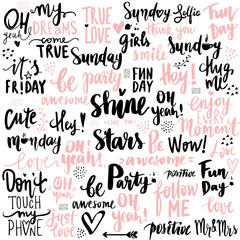 OH yeah!
MY DREAMS COME TRUE
TRUE LOVE
Sunday Selfie
Fun DAY
girls
Thank you
smile
Sunday
Hug me!
it's FRIDAY
Sunday
be party
awesome
FUN DAY
Hey!
enjoy EVERY Moment
Cute
Hey!
monday
Shine
LIKE THE
Stars
OH yeah!
Be Wow!
awesome
love
Don't TOUCH my PHONE
OH, yeah!
be awesome
Party
OH yeah!
just love
follow ME
Love
Fun Day
positive
positive
Mr&Mrs